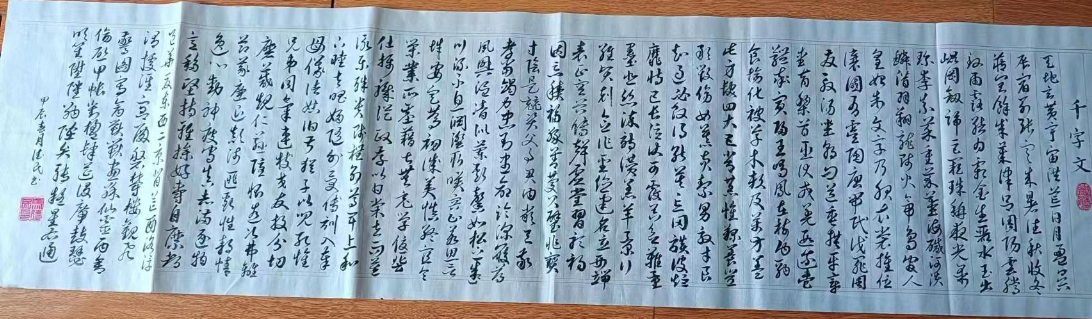 千字文
天地玄黄宇宙洪荒日月盈昃
辰宿列张寒来暑往秋收冬
藏闰余成岁律吕调阳云腾
致雨露结为霜金生丽水玉出
昆冈剑号巨阙珠称夜光果
珍李柰菜重芥姜海咸河淡
鳞潜羽翔龙师火帝鸟官人
皇始制文字乃服衣裳推位
让国有虞陶唐吊民伐罪周
发殷汤坐朝问道垂拱平章
爱育黎首臣伏戎羌遐迩壹
体率宾归王鸣凤在树白驹
食场化被草木赖及万方盖
此身发四大五常恭惟鞠养岂
敢毁伤女慕贞洁男效才良
知过必改得能莫忘罔谈彼短
靡恃己长信使可覆器欲难量
墨悲丝染诗赞羔羊景行
维贤克念作圣德建名立形端
表正空谷传声虚堂习听祸
因恶积福缘善庆尺璧非宝
寸阴是竞资父事君曰严与敬
孝当竭力忠则尽命临深履薄
夙兴温凊似兰斯馨如松之盛
川流不息渊澄取映容止若思言
辞安定笃初诚美慎终宜令
荣业所基籍甚无竟学优登
仕摄职从政存以甘棠去而益
咏乐殊贵贱礼别尊卑上和
下睦夫唱妇随外受傅训入奉
母仪诸姑伯叔犹子比儿孔怀
兄弟同气连枝交友投分切
磨箴规仁慈隐恻造次弗离
节义廉退颠沛匪亏性静情
逸心动神疲守真志满逐物
意移坚持雅操好爵自縻都
邑华夏东西二京背邙面洛浮
渭据泾宫殿盘郁楼观飞
惊图写禽兽画彩仙灵丙舍
傍启甲帐对楹肆筵设席鼓瑟
吹笙升阶纳陛弁转疑星右通
甲辰春月